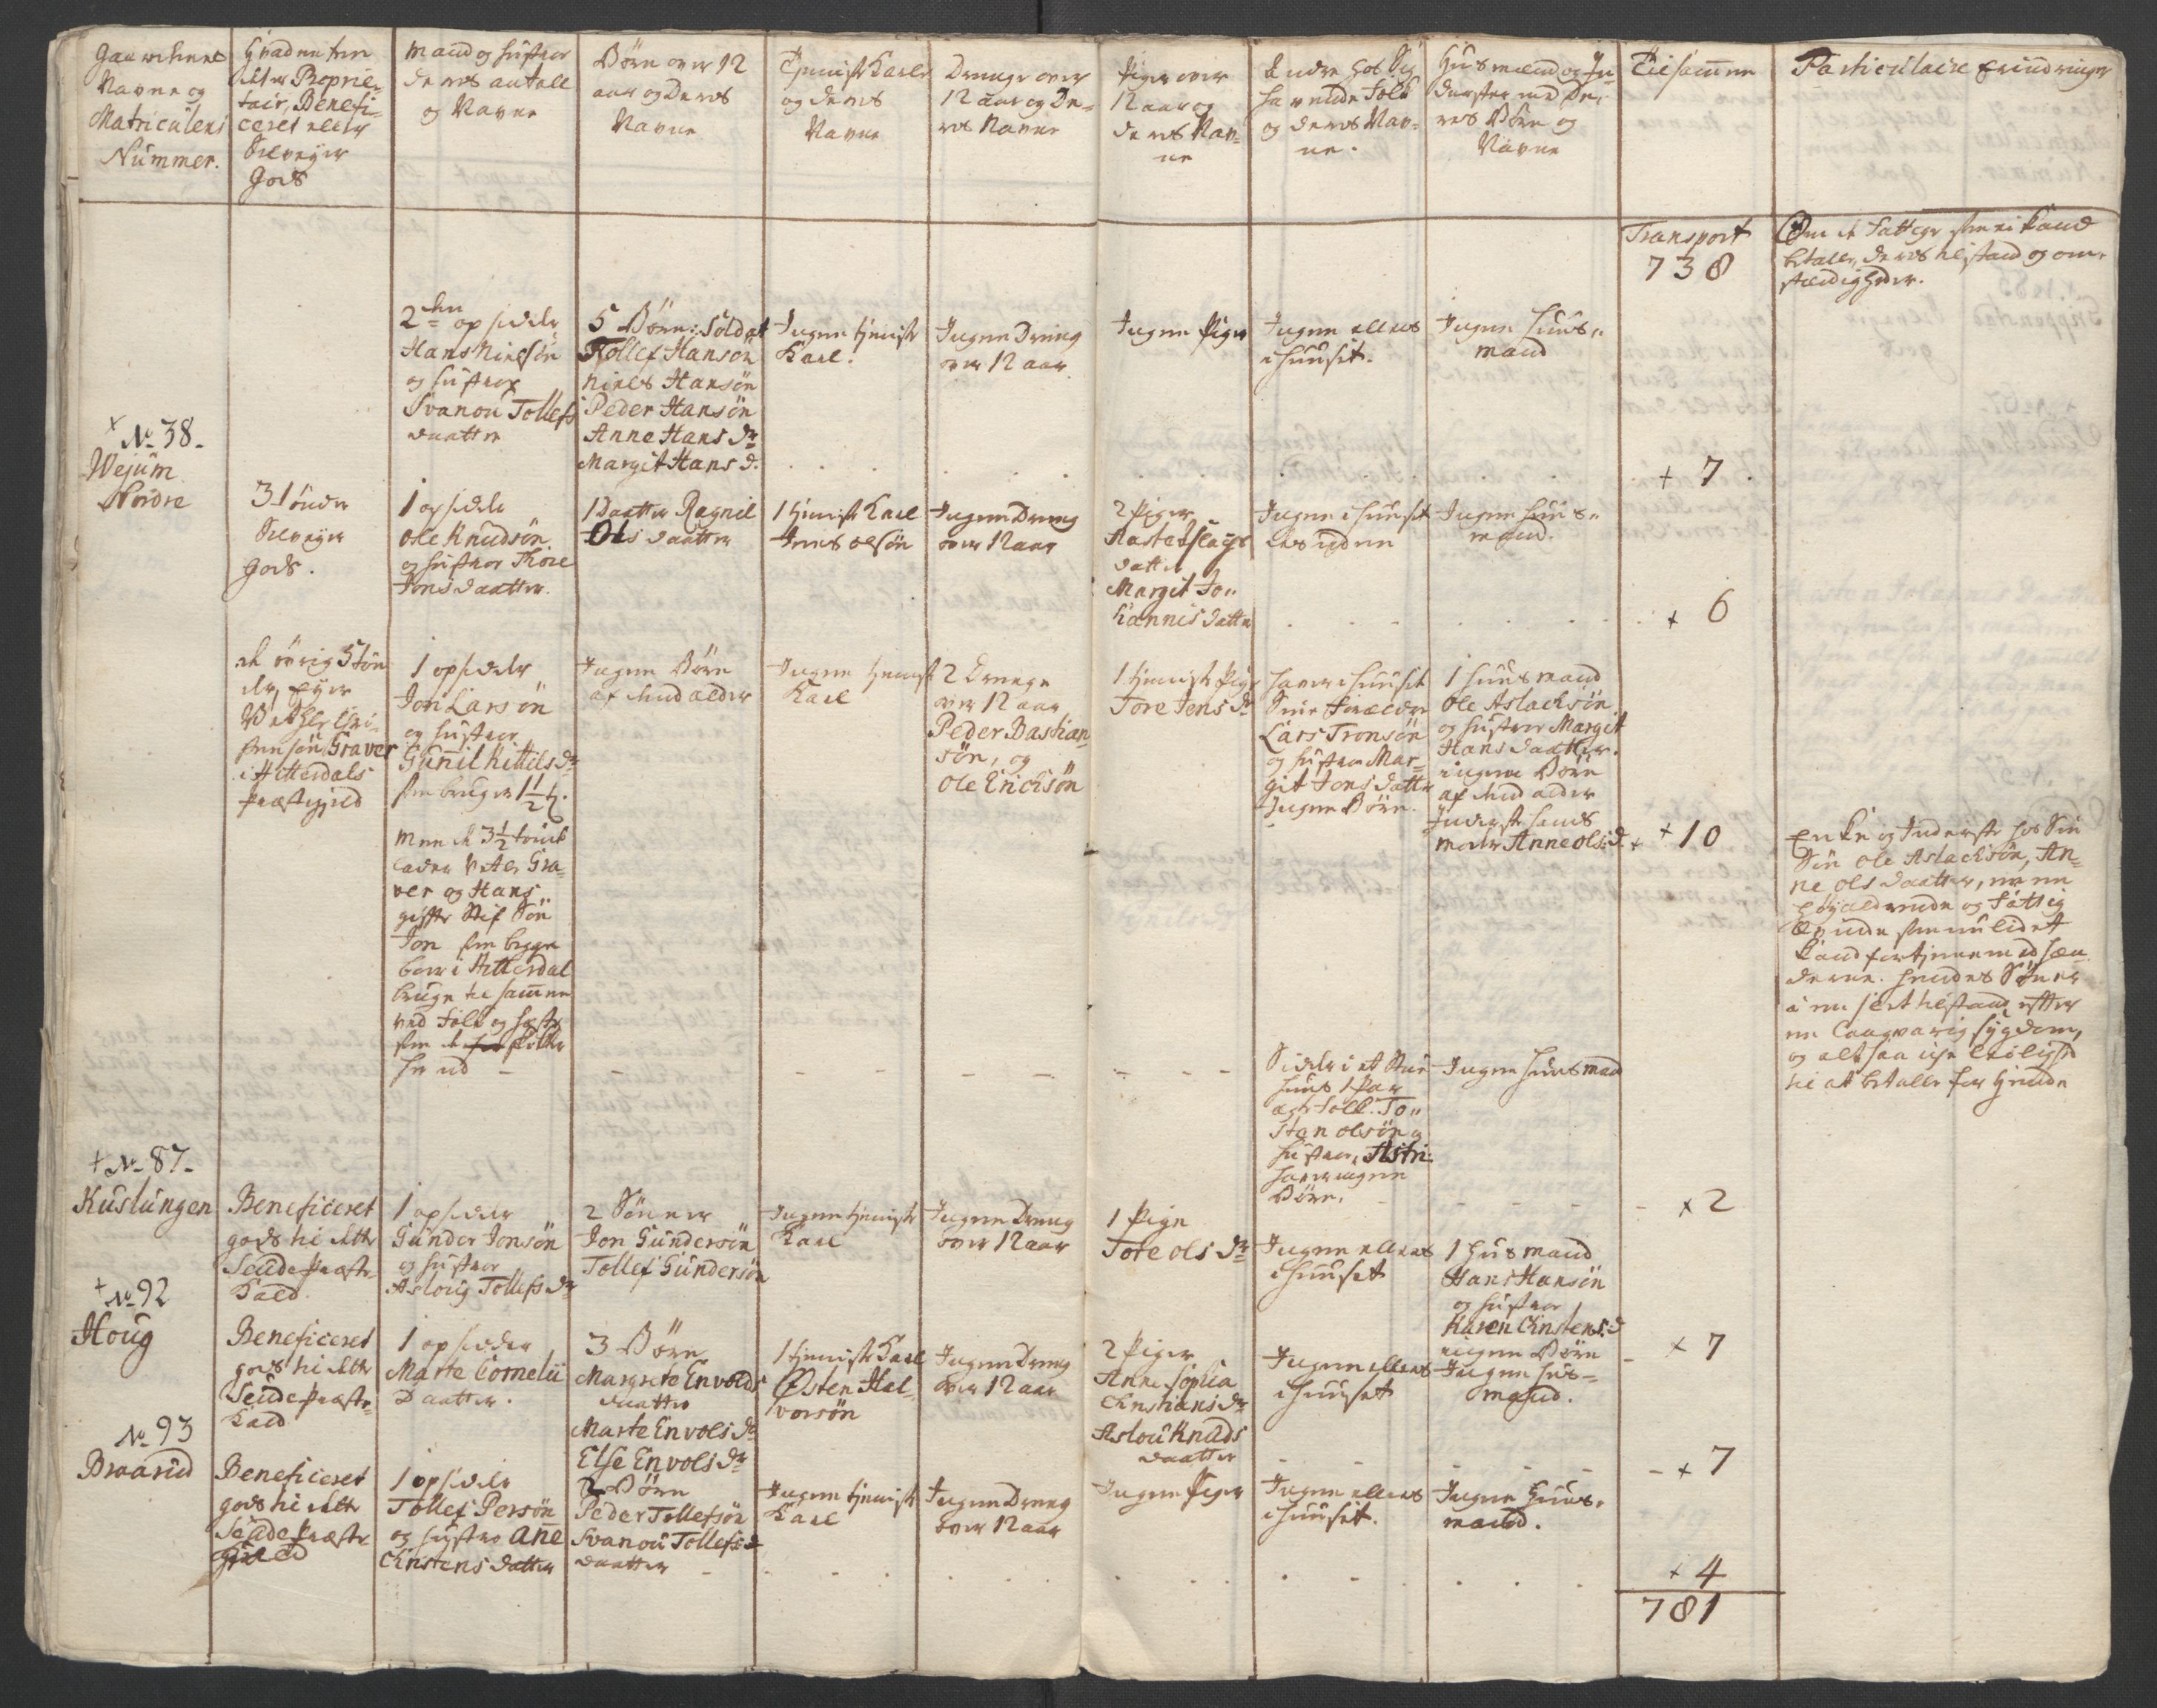 Gaardenes
Navne og
Matriculens
Nummer.
Hvad enten
det er Proprie-
tair, Benefi-
ceret eller
Selveyer
Gods
Mand og hustroe
deres antall
og Navne
Børn over 12
aar og Deres
Navne
Tjeniste Karle
og deres
Navne
Drenge over
12 aar og De-
res Navne
Piger over
12 aar og
deres Nav-
ne
Andre hos Sig
havende Folk
og deres Nav-
ne.
Huusmænd og In-
derster med De-
res Børn og
Navne
Tilsammen
Particulaire Erindringer
Transport
738
Om de Fattige som ei kand
betale, deres tilstand og om-
stændigheder.
2den opsidder
Hans Nielsøn
og hustroe
Svanou Tollefs
daatter
5 Børn: Soldat
Tollef Hansøn
Niels Hansøn
Peder Hansøn
Anne Hans Dr
Margit Hans d.
Ingen tjeniste
Karl.
Ingen Dreng
over 12 aar
Ingen Piger
Ingen ellers
i huuset.
Ingen huus-
mand
+ 7
No 38.
Wejum
Nordre
3 Tønder
Selveyer
gods.
1 opsidder
Ole Knudsøn
og hustroe Thore
Jons daatter.
1 Daatter Ragnil
Ols daatter
1 tjeniste Karl
Jens Olsøn
Ingen Dreng
over 12 aar
2 Piger
Aaste Aslags
datter
Margit Jo-
hannis datter
Ingen i huuset
Ingen huus-
mand.
+ 6
de øvrige 5 Tøn
der, eyer
Graver
i Hitterdals
præstegield
1 opsidder
Jon Larsøn
og hustroe
Gunil Kittils dr
som bruger 1½ t.
Men de 3½ tønde
ver og Hans
gifte Stif Søn
Jon som begge
boer i Hitterdal
bruge tilsammen
ved Folk og heste
som de skikker
hen ud
Ingen Børn
af den alder
Ingen tjenist
Karl
2 Drenge
over 12 aar
Peder Bastian-
søn, og
Ole Erichsøn
1 tjeniste Pige
Tore Jens dr
haver i huuset
Sine Forældre
Lars Tronsøn
og hustroe Mar-
git Jons datter
Ingen Børn.
1 huusmand
Ole Aslachsøn
og hustroe Margit
Hans daatter.
ingen Børn
af den alder
Inderste hands
moder Anne Ols d.
+ 10
Enke og Inderste hos Sin
Søn Ole Aslachsøn, An-
ne Ols daatter, er en
høyaldrende og Fattig
Qvinde som nu lidet
kand fortjene med hæn-
derne. hendes Søn er
i en slet tilstand efter
en langvarig sygdom,
og altsaa icke leilighed
til at betale for hende
Sidder i et Stue
huus 1 Par
ægte Folk. To-
stan Olsøn og
hustroe, Astri.
haver ingen
Børn.
Ingen huusmand
+ 2
+ No 87.
Kuslungen
Beneficeret
gods til dette
Seude præste-
kald.
1 opsidder
Gunder Jonsøn
og hustroe
Asloug Tollefs dr
2 Sønner
Jon Gundersøn
Tollef Gundersøn
Ingen tjeniste
Karl
Ingen Dreng
over 12 aar
1 Pige
Tore Ols dr
Ingen ellers
i huuset
1 huusmand
Hans Hansøn
og hustroe
Karen Christens d
ingen Børn
+ 7
+ No 92
Houg
Beneficeret
gods til dette
Seude præste-
kald
1 opsidder
Marte Cornelii
Daatter.
3 Børn
Margrete Envolds
daatter
Marte Envols dr
Else Envols dr
1 tjeniste Karl
Østen Hal-
vorsøn
Ingen Dreng
over 12 aar
2 Piger
Anne Sophia
Christians dr
Aslou Knuds
daatter
Ingen ellers
i huuset
Ingen huus-
mand.
+ 7
No 93
Braarud
Beneficeret
gods til dette
Seude præste
gield
1 opsidder
Tollef Persøn
og hustroe Ane
Christens datter
2 Børn
Peder Tollefsøn
Svanou Tollefs
daatter
Ingen tjeniste
Karl
Ingen Dreng
over 12 aar
Ingen Piger
Ingen ellers
i huuset.
Ingen huus-
mand.
+ 4
781